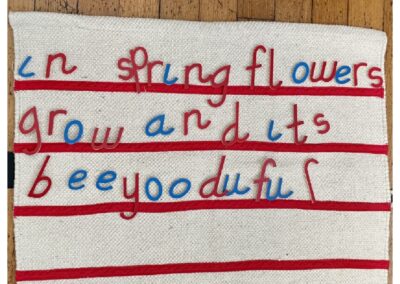 in spring flowers
grow and its
beeyooduful